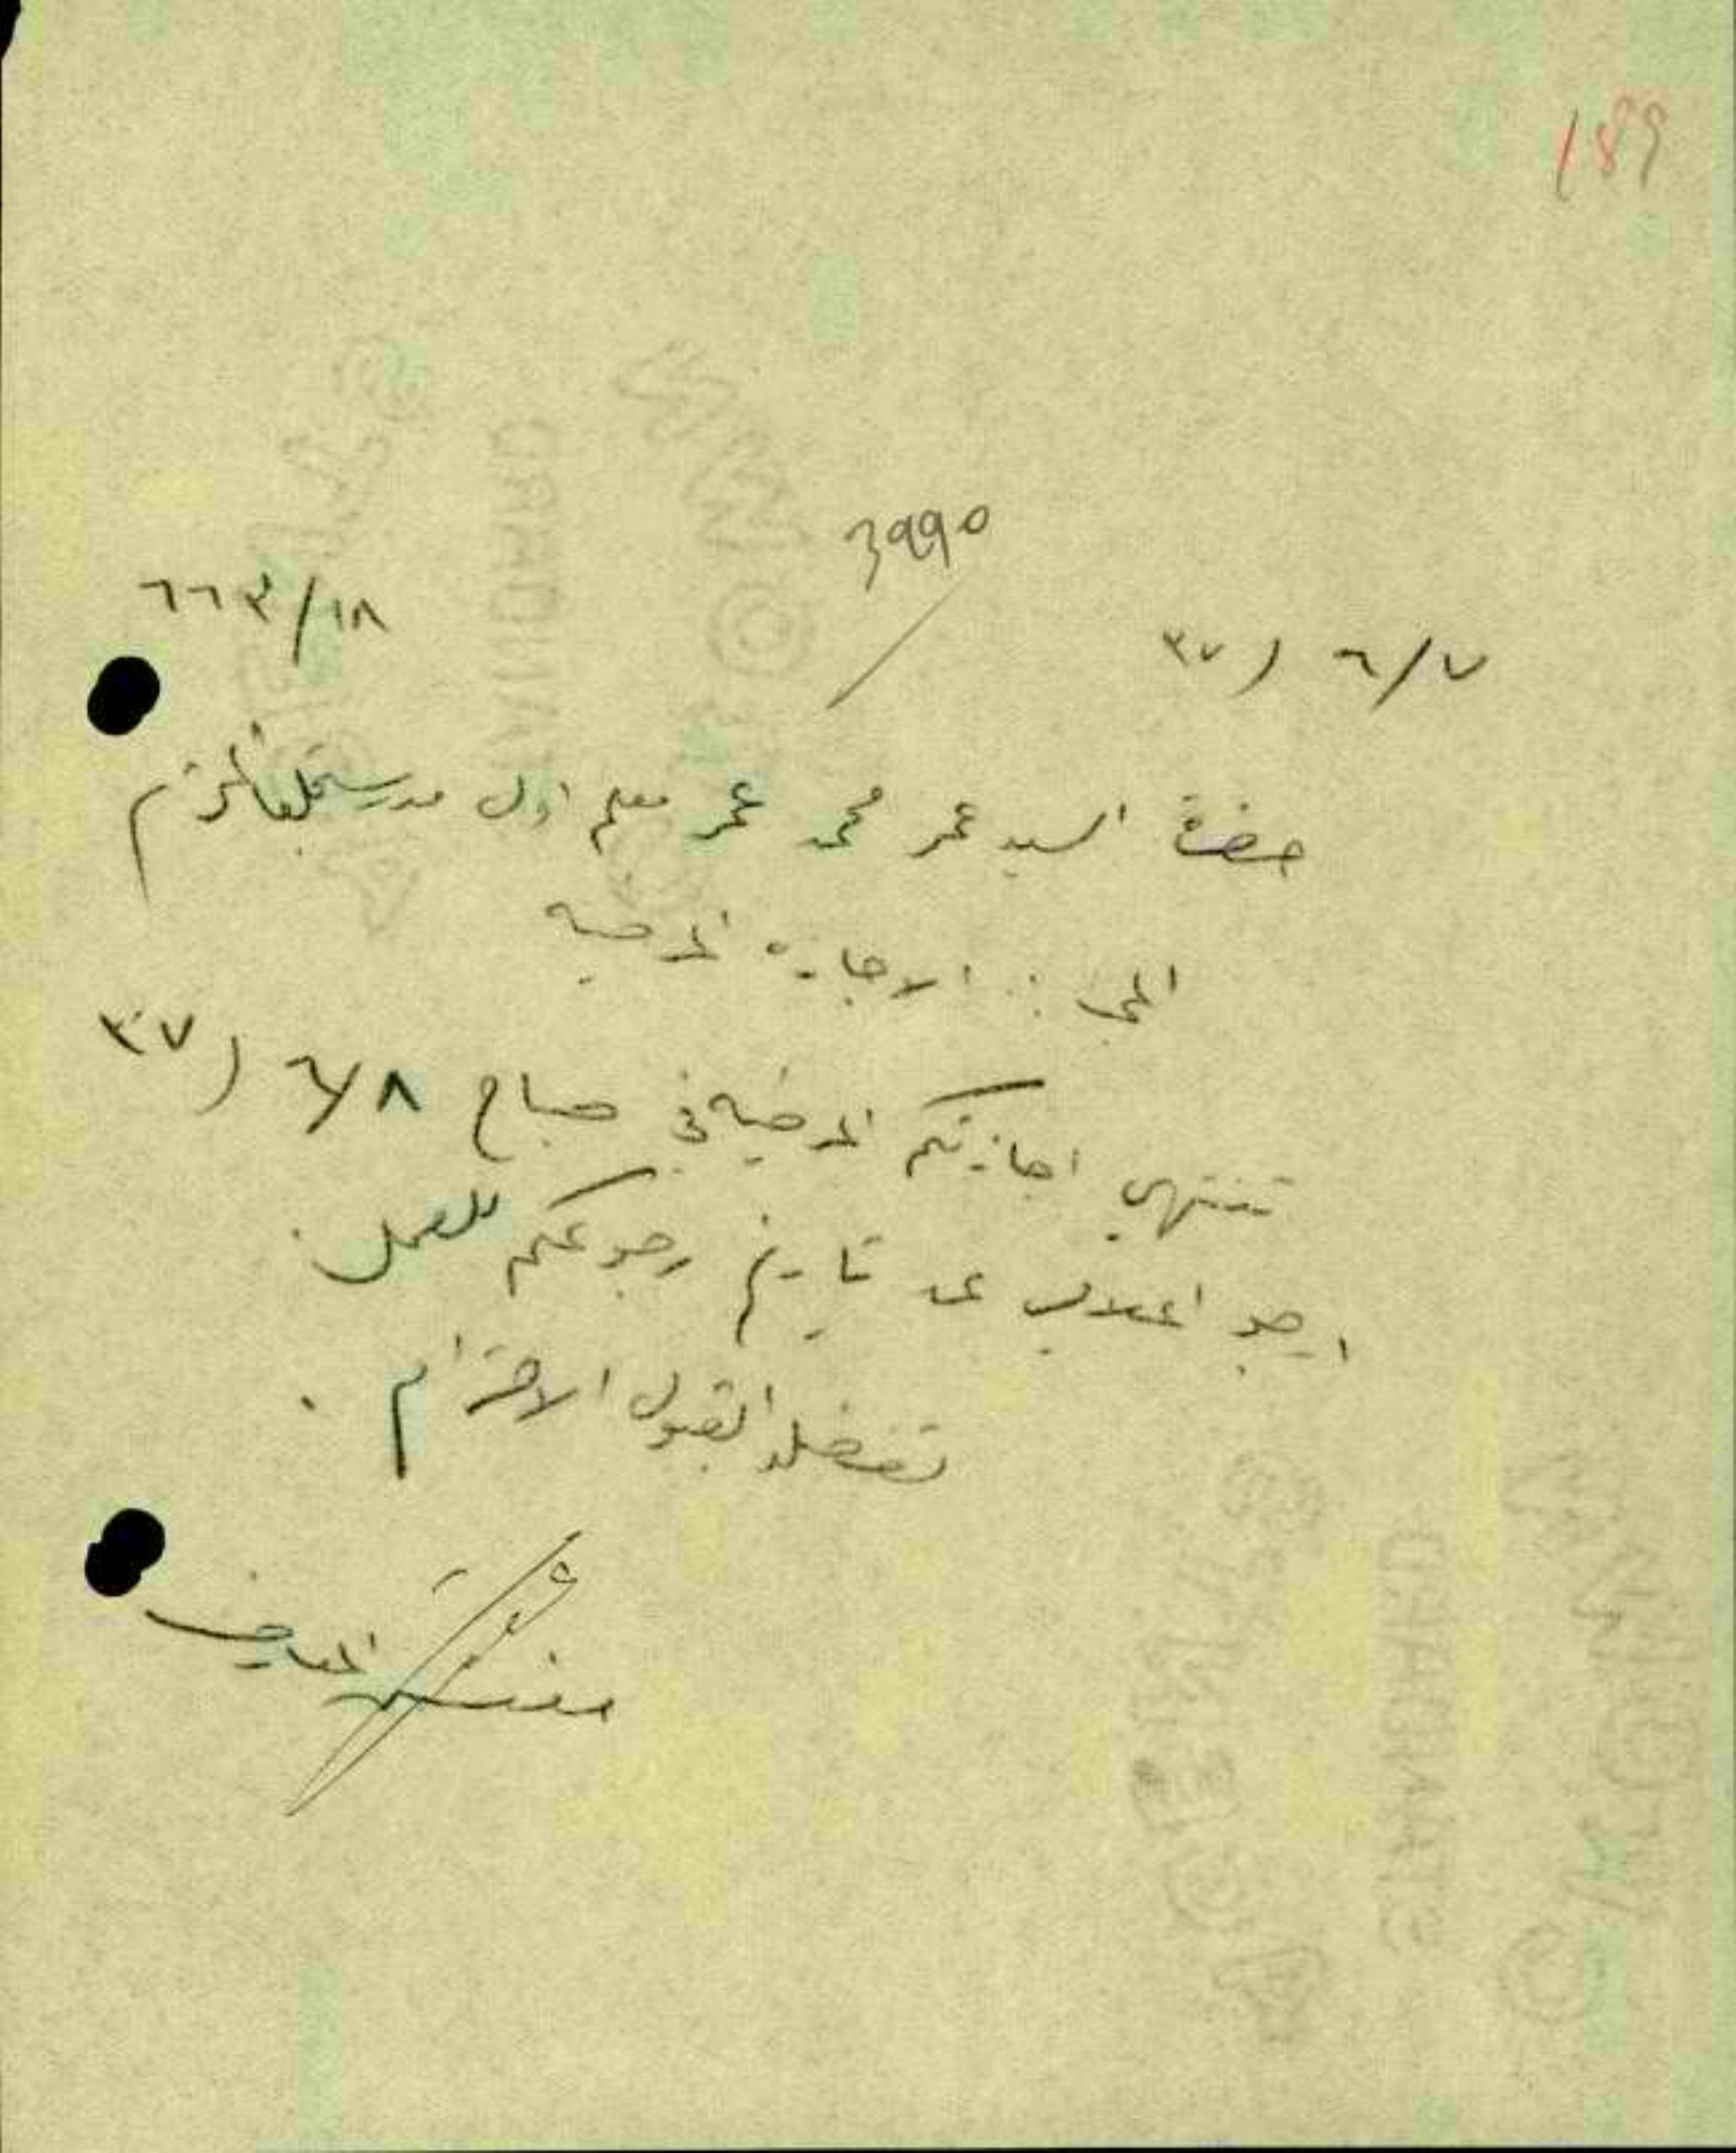 189
3990
٦٦٣/١٨
٣٧ / ٦/٧
حضرة السيد عمر محمد عمر معلم اول مدرسة المحترم
: الاجازه المرضيه
تنتهي اجازتكم المرضيه في صباح ٦/٨ / ٣٧
ارجو اعلامي عن تاريخ رجوعكم للعمل.
تفضلوا بقبول الاحترام .
مفتش المعارف